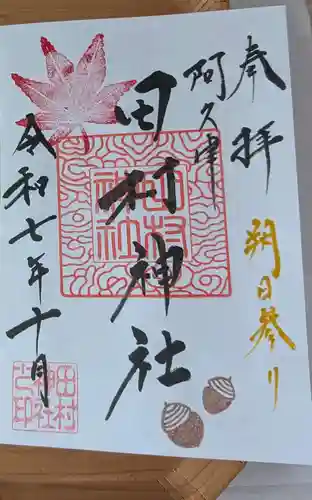 奉拝
朔日参り
阿久津
田村神社
令和七年十月
田村
神社
田村
神社
之印